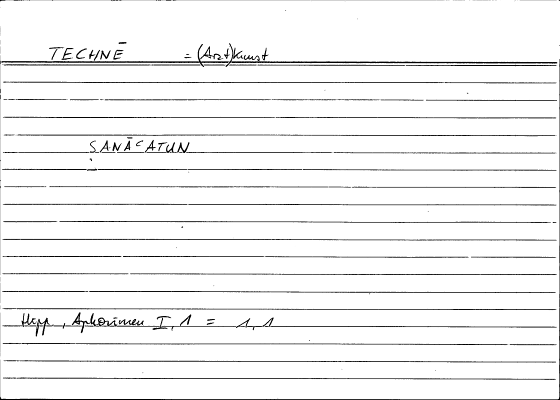 TECHNĒ = (Arzt)Kunst
ṢANĀʿATUN
Hipp, Aphorismen I, 1 = 1, 1